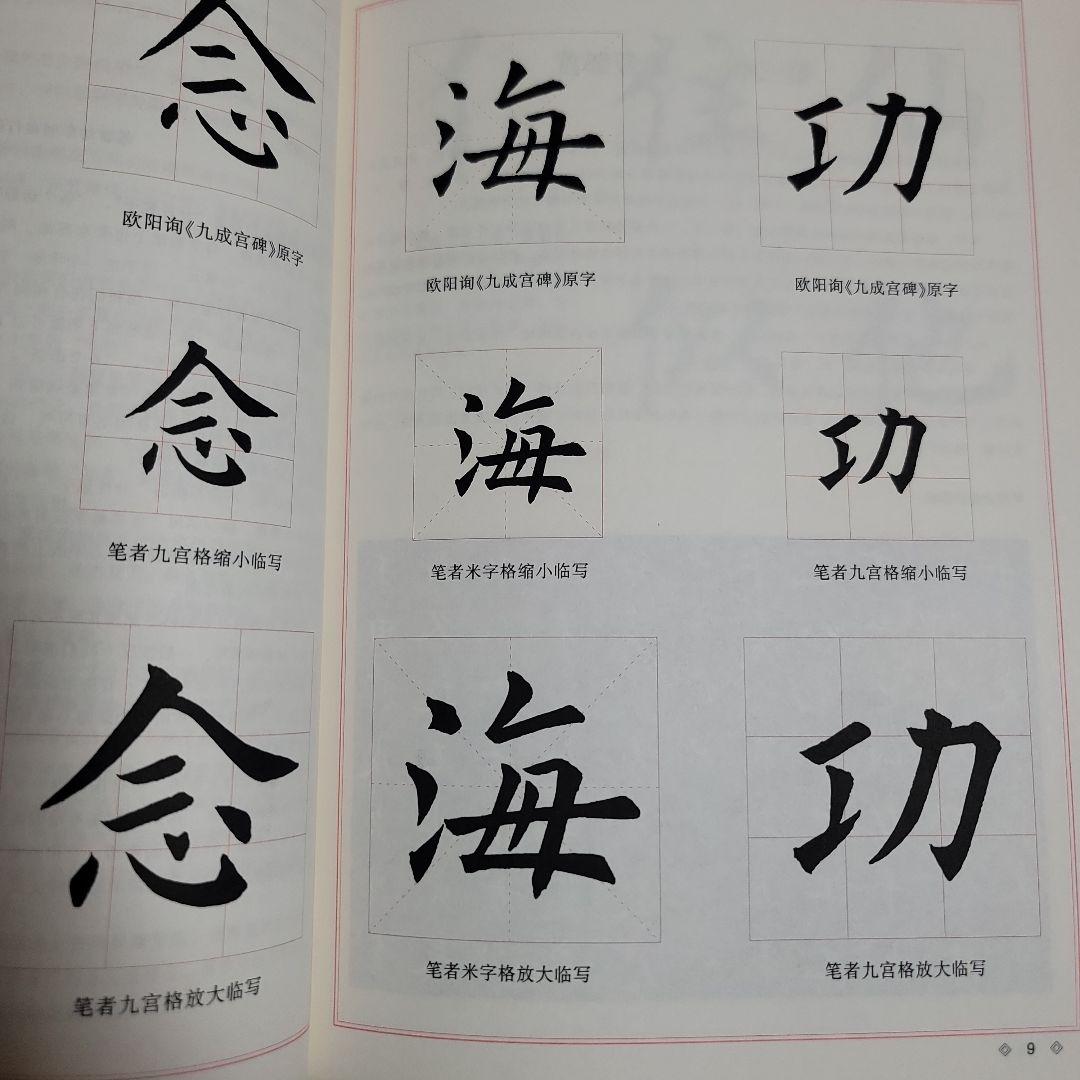 念
欧阳询《九成宫碑》原字
念
笔者九宫格缩小临写
念
笔者九宫格放大临写
海
功
欧阳询《九成宫碑》原字
欧阳询《九成宫碑》原字
海
功
笔者米字格缩小临写
笔者九宫格缩小临写
海
功
笔者米字格放大临写
笔者九宫格放大临写
9